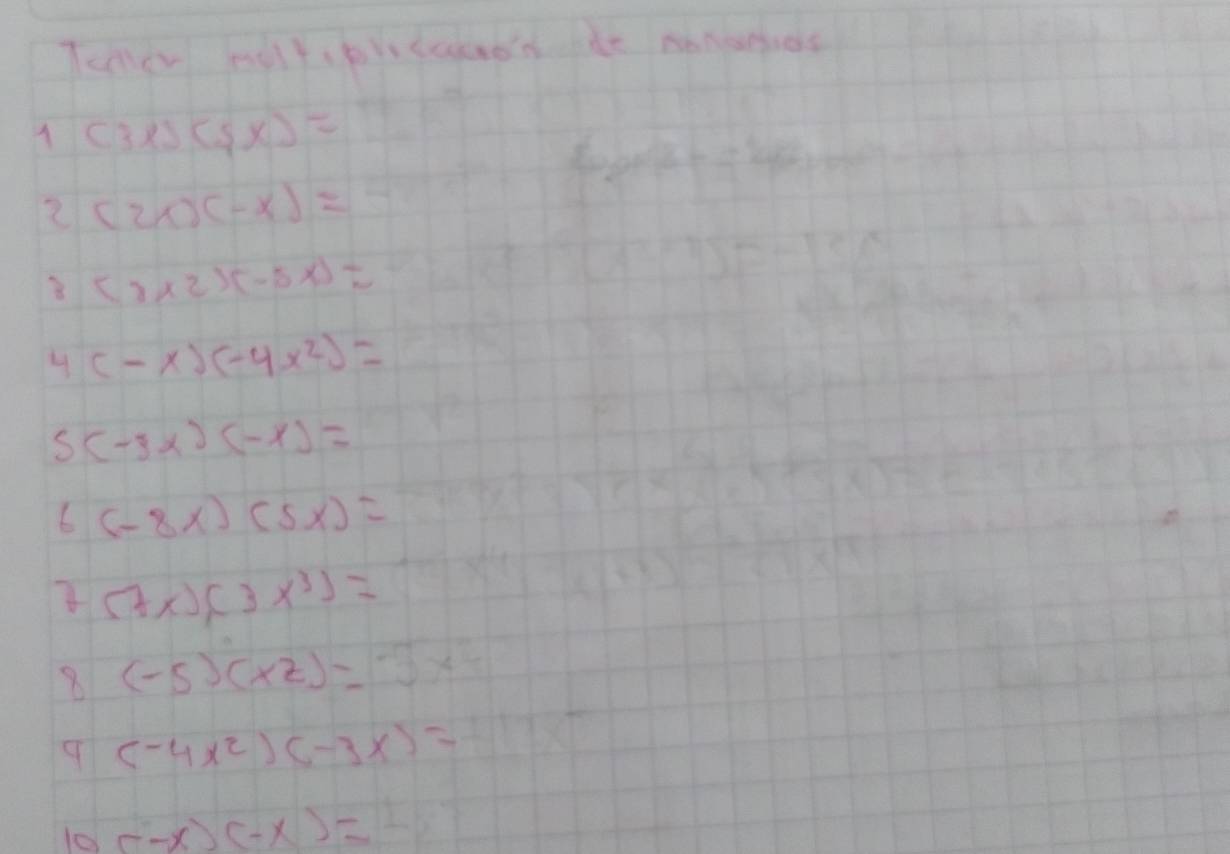 multiplicación de monomios
1 (3x)(5x)=
2 (2x)(-x)=
3 (3x2)(-5x)=
4 (-x)(-4x²)=
5 (-3x)(-x)=
6 (-8x)(5x)=
7 (7x)(3x³)=
8 (-5)(x2)=
9 (-4x²)(-3x)=
10 (-x)(-x)=